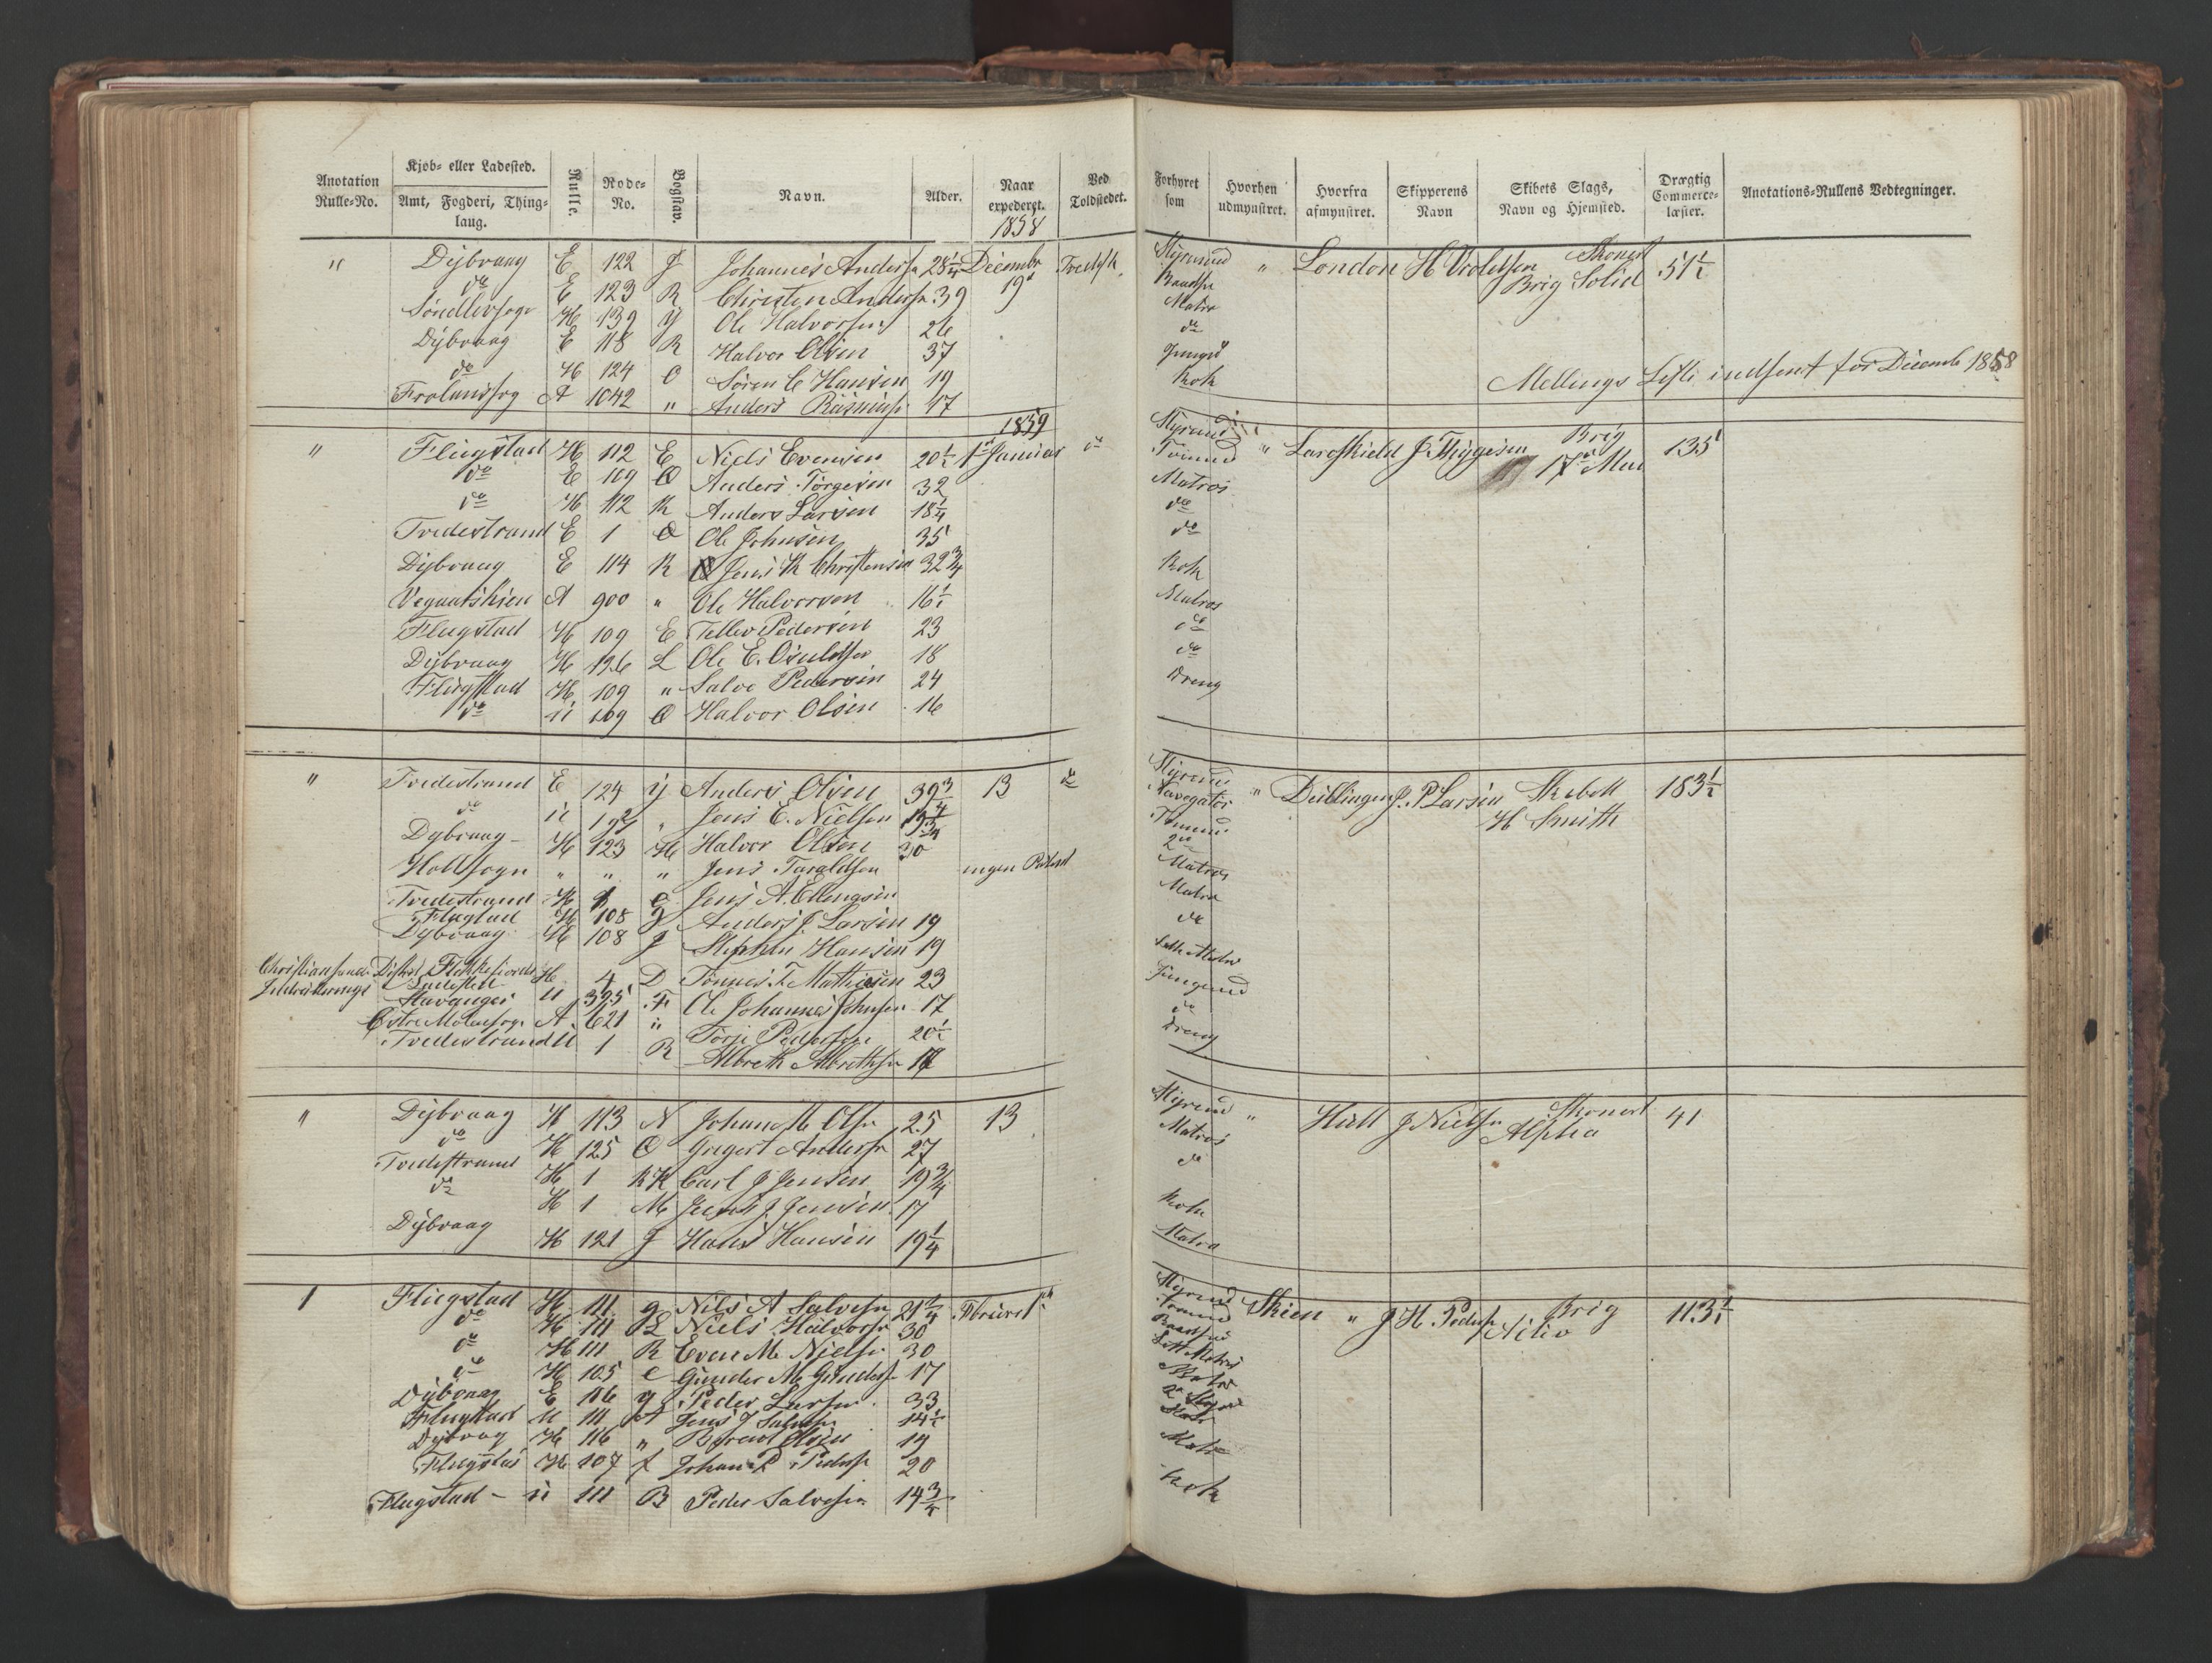 Anotation Rulle-No. Kjøb- eller Ladested. Amt, Fogderi, Thinglaug. Rulle. Rode-No. Bogstav. Navn. Alder. Naar expederet. Ved Toldstedet. Forhyret som Hvorhen udmynstret. Hvorfra afmynstret. Skipperens Navn Skibets Slags, Navn og Hjemsted. Drægtig Commercelæster. Anotations-Rullens Vedtegninger.
1858
" Dÿbvaag E 122 J Johannes Anderss 28 1/4 Decembr Tvedestr Styrmd " London H Skonert 51 1/2
do E 123 R Christen Anderss 39 19 Baadsm Brig Solid
Søndlevsogn H 139 Y Ole Halvorsen 26 Matros
Dÿbvaag E 118 R Halvor Olsen 37 do
do H 124 O Søren C Hansen 19 Jungmd
Frolandsog A 1042 " Anders 17 Kok Mellings Liste indsent for Decemb 1858
1859
" Flugstad H 112 E Niels Evensen 20 1/2 1ste Januar do Styrmd " J Thygesen Brig 135
do E 109 O Anders Torgersen 32 Tømmd 17de Mai
do H 112 K Anders Larsen 18 1/4 Matros
Tvedestrand E 1 O Ole Johnsen 35 do
Dÿbvaag E 114 K Jens K Christensen 32 3/4 do
Vegaarshien A 900 " Ole Halvorsen 16 1/2 Kok
Flugstad H 109 E Tellev Pedersen 23 Matros
Dÿbvaag H 126 L Ole E. Osuldsen 18 do
Flugstad H 109 " Salve Pedersen 24 do
do " 109 O Halvor Olsen 16 Dreng
" Tvedestrand E 124 Y Anders Olsen 39 3/4 13 do Styrmd " J. P Larsen Skibet 183 1/2
do " 197 " Jens E. Nielsen 19 3/4 Navigatør H Smith
Dybvaag H 123 H Halvor Olsen 30 Tømmd
Holtsogn " " " Jens Taraldsen ingen 2de
Tvedestrand H 1 C Jens A. Ellingsen Matros
Flugstad H 108 G Anders J. Larsen 19 Matros
Dybvaag H 108 J Stephen Hansen 19 do
Christiansands District Flekkefjords H 4 D Tønnes T. Mathiesen 23 Matros
Stavanger U 325 F Ole Johannes Johnsen 17 Jungmd
Østre Molansogn A 621 " Torje Pedersen 20 1/2 do
Tvedestrand U 1 R Albreth Albrethsen 17 Dreng
" Dÿbvaag H 113 N Johan M Olsen 25 13 Styrmd " Hull J Nielsen Skonert 41
do H 125 O Gregert Andersen 27 Matros Alpha
Tvedestrand H 1 K Carl J Jensen 19 3/4 do
do H 1 M Jens J. Jensen 17 Kok
Dÿbvaag H 121 J Hans Hansen 19 1/4 Matros
1 Flugstad H 111 g Nils A Salvesen 21 1/4 Februar 1ste Styrmd Skien " J H. Pedersen Brig 113 1/2
do H 111 L Niels Halvorsen 30 Tømmd Activ
do H 111 R Even M. Nielsen 30 Baadsmd
do H 105 C Gunder M Gundersen 17 Lett Matros
Dÿbvaag E 106 Y Peder Larsen 33 Matros
Flugstad U 111 A Jens J Salvesen 14 1/2
Dybvaag H 116 " Olsen 19
Flugstad H 107 f Johan P. Pedersen 20 Matr
Flugstad " 111 B Peder Salvesen 14 3/4 Kok